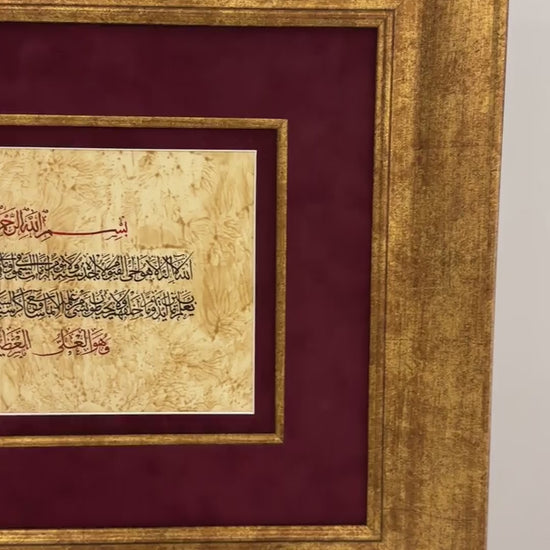 بِسْمِ اللَّهِ الرَّحْمَ
اللَّهُ لَا إِلَهَ إِلَّا هُوَ الْحَيُّ الْقَيُّومُ لَا تَأْخُذُهُ سِنَةٌ وَلَا نَوْمٌ لَهُ مَا فِي السَّمَوَاتِ
يَعْلَمُ مَا بَيْنَ أَيْدِيهِمْ وَمَا خَلْفَهُمْ وَلَا يُحِيطُونَ بِشَيْءٍ مِنْ عِلْمِهِ إِلَّا بِمَا شَاءَ وَسِعَ كُرْسِيُّهُ
وَهُوَ الْعَلِيُّ الْعَظِي